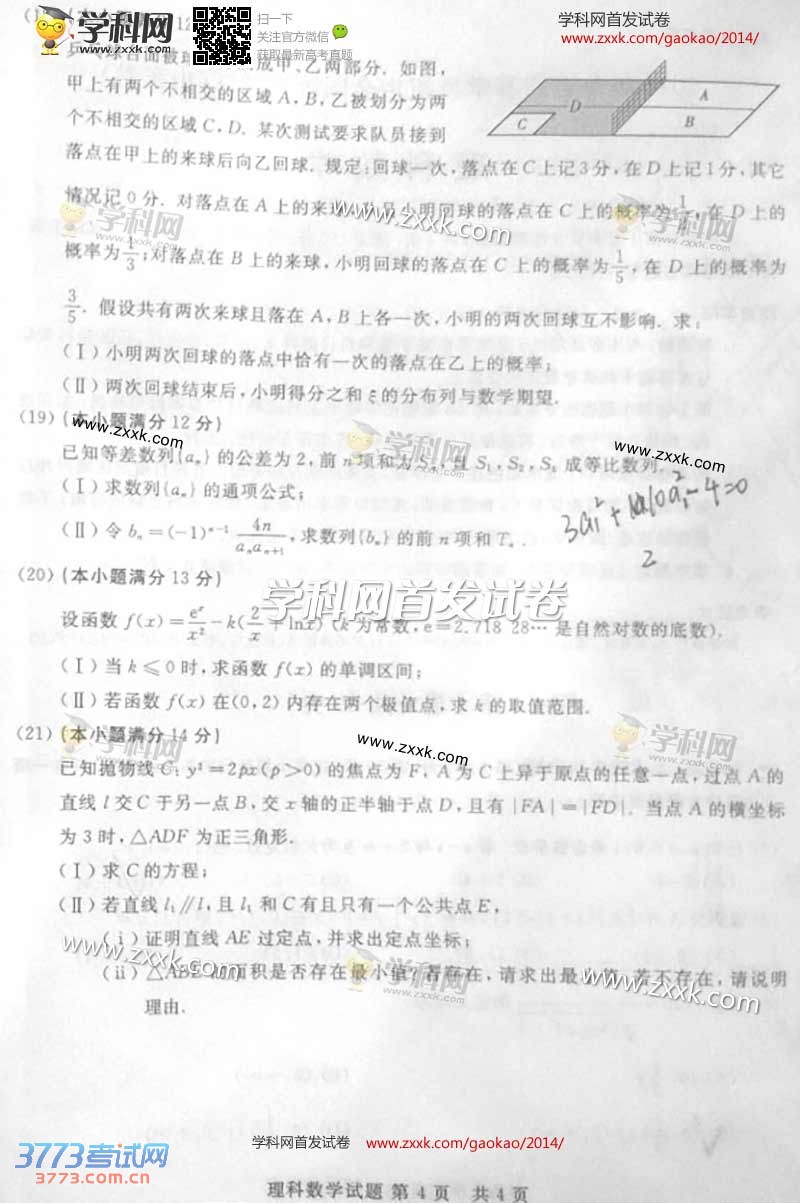 学科网 www.zxxk.com
扫一下
关注官方微信
获取最新高考真题
学科网首发试卷
www.zxxk.com/gaokao/2014/
乒乓球台面被球网分成甲、乙两部分. 如图,
甲上有两个不相交的区域 A,B,乙被划分为两
个不相交的区域 C,D. 某次测试要求队员接到
A
D
B
C
落点在甲上的来球后向乙回球. 规定:回球一次,落点在C上记3分,在D上记1分,其它
情况记0分. 对落点在 A 上的来球 小明回球的落点在 C 上的概率为 ,在 D 上的
概率为1/3;对落点在 B 上的来球,小明回球的落点在 C 上的概率为1/5,在 D 上的概率为
3/5. 假设共有两次来球且落在 A,B 上各一次,小明的两次回球互不影响. 求:
(Ⅰ)小明两次回球的落点中恰有一次的落点在乙上的概率;
(Ⅱ)两次回球结束后,小明得分之和 ξ 的分布列与数学期望.
(19)(本小题满分12分)
已知等差数列{aₙ}的公差为2,前 n 项和为Sₙ,且 S₁,S₂,S₄ 成等比数列.
(Ⅰ)求数列{aₙ}的通项公式;
(Ⅱ)令 bₙ=(-1)ⁿ⁻¹ 4n/(aₙaₙ₊₁),求数列{bₙ}的前 n 项和 Tₙ.
(20)(本小题满分13分)
学科网首发试卷
设函数 f(x)=eˣ/x²-k(2/x+lnx)(k为常数,e=2.718 28…是自然对数的底数).
(Ⅰ)当 k⩽0时,求函数 f(x)的单调区间;
(Ⅱ)若函数 f(x)在(0,2)内存在两个极值点,求 k 的取值范围.
(21)(本小题满分14分)
已知抛物线 C:y²=2px(p>0)的焦点为 F,A 为 C 上异于原点的任意一点,过点 A 的
直线 l 交 C 于另一点 B,交 x 轴的正半轴于点 D,且有|FA|=|FD|. 当点 A 的横坐标
为3时,△ADF 为正三角形.
(Ⅰ)求 C 的方程;
(Ⅱ)若直线 l₁∥l,且 l₁ 和 C 有且只有一个公共点 E,
(ⅰ)证明直线 AE 过定点,并求出定点坐标;
(ⅱ)△ABE 的面积是否存在最小值?若存在,请求出最小值,若不存在,请说明
理由.
学科网首发试卷 www.zxxk.com/gaokao/2014/
3773考试网
www.3773.com.cn
理科数学试题 第4页 共4页